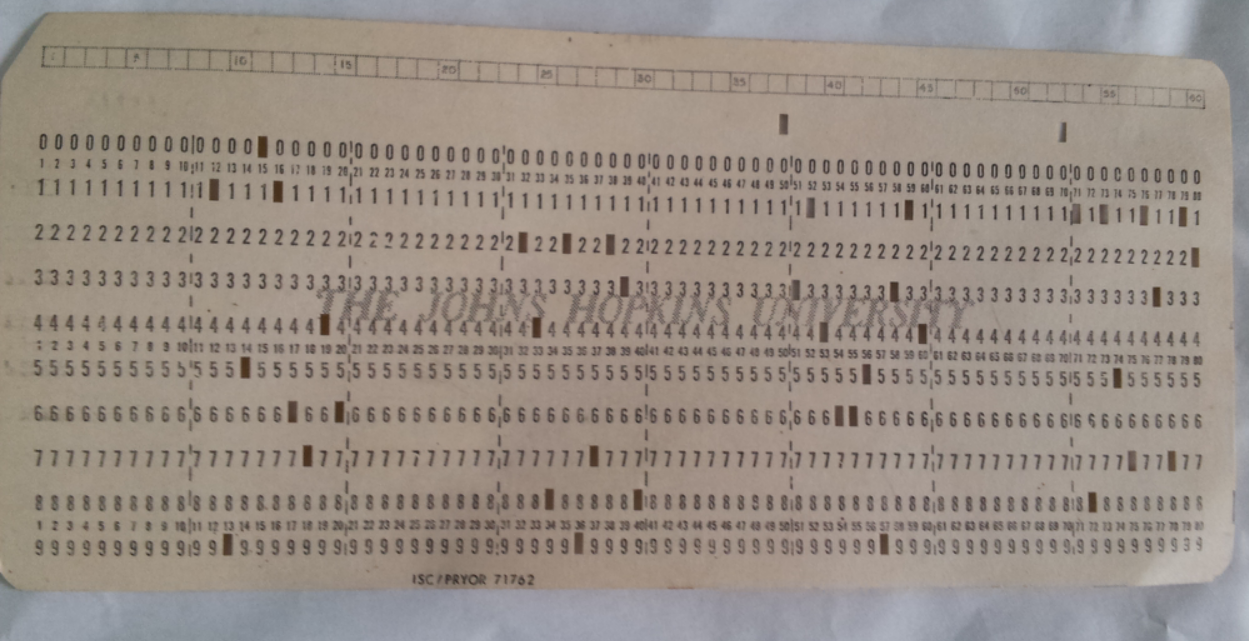 5 10 15 20 25 30 35 40 45 50 55 60
0000000000 000000000 0000000000 0000000000 0000000000 0000000000 0000000000 0000000000
1 2 3 4 5 6 7 8 9 10 11 12 13 14 15 16 17 18 19 20 21 22 23 24 25 26 27 28 29 30 31 32 33 34 35 36 37 38 39 40 41 42 43 44 45 46 47 48 49 50 51 52 53 54 55 56 57 58 59 60 61 62 63 64 65 66 67 68 69 70 71 72 73 74 75 76 77 78 79 80
1111111111 11111111 1111111111 1111111111 1111111111 11111111 1111111111 111111
2222222222 2222222222 2222222222 2222222 2222222222 2222222222 2222222222 222222222
3333333333 3333333333 3333333333 333333333 3333333333 33333333 3333333333 333333333
THE JOHNS HOPKINS UNIVERSITY
4444444444 444444444 4444444444 444444444 4444444444 44444444 4444444444 4444444444
1 2 3 4 5 6 7 8 9 10 11 12 13 14 15 16 17 18 19 20 21 22 23 24 25 26 27 28 29 30 31 32 33 34 35 36 37 38 39 40 41 42 43 44 45 46 47 48 49 50 51 52 53 54 55 56 57 58 59 60 61 62 63 64 65 66 67 68 69 70 71 72 73 74 75 76 77 78 79 80
5555555555 555555555 5555555555 5555555555 5555555555 555555555 5555555555 555555555
6666666666 66666666 6666666666 6666666666 6666666666 66666666 6666666666 6666666666
7777777777 777777777 7777777777 777777777 7777777777 7777777777 7777777777 77777777
8888888888 8888888888 8888888888 88888888 8888888888 8888888888 8888888888 888888888
1 2 3 4 5 6 7 8 9 10 11 12 13 14 15 16 17 18 19 20 21 22 23 24 25 26 27 28 29 30 31 32 33 34 35 36 37 38 39 40 41 42 43 44 45 46 47 48 49 50 51 52 53 54 55 56 57 58 59 60 61 62 63 64 65 66 67 68 69 70 71 72 73 74 75 76 77 78 79 80
9999999999 999999999 9999999999 999999999 9999999999 999999999 9999999999 9999999999
ISC/PRYOR 71762